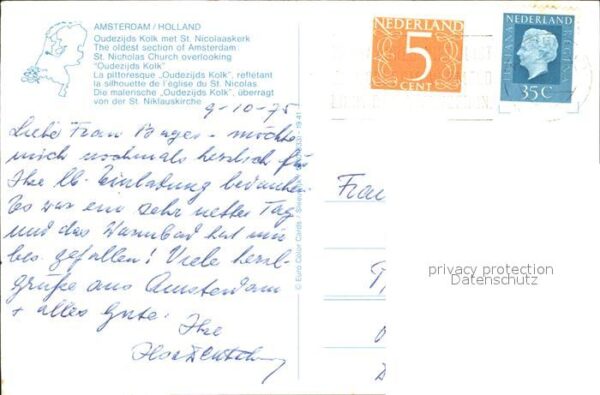 AMSTERDAM / HOLLAND
Oudezijds Kolk met St. Nicolaaskerk
The oldest section of Amsterdam
St. Nicholas Church overlooking
"Oudezijds Kolk"
La pittoresque „Oudezijds Kolk", reflétant
la silhouette de l'église du St. Nicolas.
Die malerische „Oudezijds Kolk", überragt
von der St. Niklauskirche
9-10-75
Liebe Frau - möchte
mich nochmals herzlich für
Ihre lb. Einladung bedanken.
Es war ein sehr netter Tag
und das Warmbad hat mir
bes. gefallen! Viele herzl.
Grüße aus Amsterdam
+ alles Gute.
Ihre
© Euro Color Cards
NEDERLAND
5
CENT
NEDERLAND
JULIANA REGINA
35C
Frau
privacy protection
Datenschutz